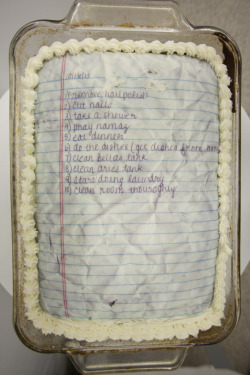 1) remove nail polish
2) cut nails
3) take a shower
4) pray namaz
5) eat dinner
6) do the dishes (get dishes from
7) clean bellas tank
8) clean aries tank
9) start doing laundry
10) clean room thouroughly